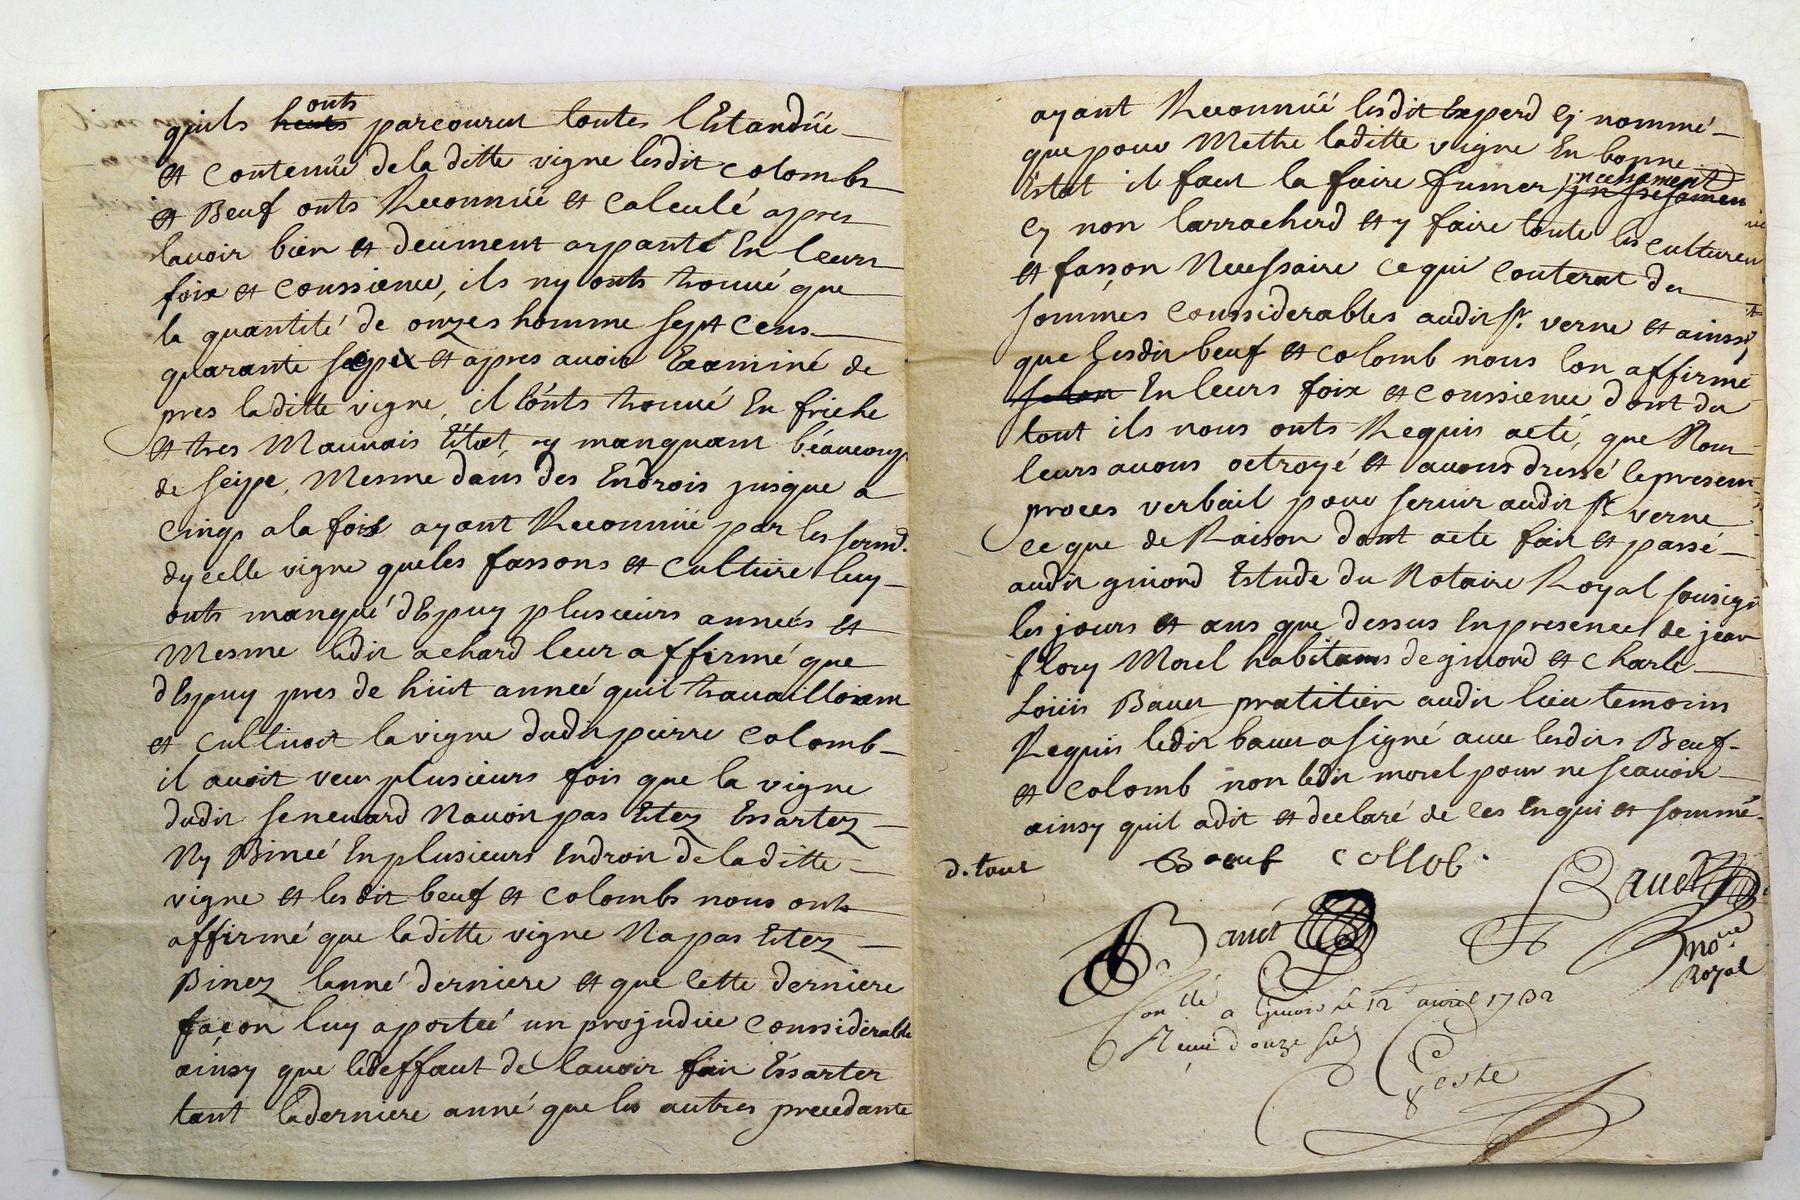 quils onts parcourut toutes lEstandüe
et contenüe de la ditte vigne lesdit Colombs
et Beuf onts Reconnüe et calculé apres
lavoir bien et deument arpanté En leurs
foix et conssience, ils ny onts trouué que
la quantité de onzes homme sept cens
quarante et apres auoir Examiné de
pres laditte vigne, il lonts trouué En friche
et tres Mauuais Etat, y manquant béaucoup
de seipe, Mesme dans des Endrois jusque a
cinqs a la fois ayant Reconnüe par les
dycelle vigne que les fassons et Culture luy
onts manqué dEspuy plusieurs années et
Mesme ledit achard leur affirmé que
dEspuy pres de huit anneé quil trauailloient
et cultiuoit la vigne dudit pierre Colomb
il auoit veu plusieurs fois que la vigne
dudit seneuard Nauoit pas Etez Essartez
Ny Bineé En plusieurs Endroit de laditte
vigne et lesdit beuf et Colombs nous onts
affirmé que laditte vigne Na pas Etez
Binez lanné derniere et que cette derniere
façon luy aporteé un prejudice conssiderable
ainsy que le deffaut de lauoir fait Essarter
tant la derniere anné que les autres precedante
ayant Reconnüé lesdit Experd Cy nommé
que pour Methe laditte vigne En bonne
Estat il faut la faire fumer incessament
Cy non larracherd et y faire toute les culturen
et fasson Necessaire ce qui couterat des
sommes conssiderables audit sr. verne et ainssy
que lesdit beuf et colomb nous lon affirmé
En leurs foix et conssience dont du
tout ils nous onts Requis acté, que Nous
leurs auons octroyé et auons dressé le present
proces verbail pour seruir audit sr. verne
ce que de Raison dont acte fait et passé
audit giuord Estude du Notaire Royal sousigé
les jours et ans que dessus En presence de jean
flory Morel habitans de giuord et charle
Loüis Bauet pratitien audit lieu temoins
Requis ledit bauet a signé auec lesdits Beuf
et Colomb non ledit morel pour ne scauoir
ainsy quil a dit et declaré de ces Enqui et sommé
d. tout
Boeuf Collob
Bauet
Bauet
no.re
Royal
Con.llé a Giuors le 12 auril 1732
Receu d onze sols
Geste